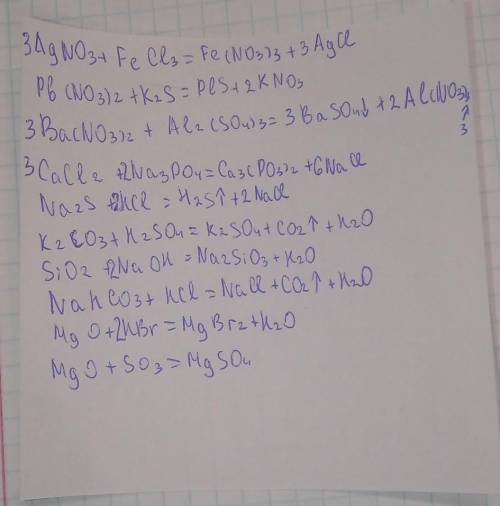 3AgNO3 + FeCl3 = Fe(NO3)3 + 3AgCl
Pb(NO3)2 + K2S = PbS + 2KNO3
3Ba(NO3)2 + Al2(SO4)3 = 3BaSO4↓ + 2Al(NO3)3
3CaCl2 + 2Na3PO4 = Ca3(PO3)2 + 6NaCl
Na2S + 2HCl = H2S↑ + 2NaCl
K2CO3 + H2SO4 = K2SO4 + CO2↑ + H2O
SiO2 + 2NaOH = Na2SiO3 + H2O
NaHCO3 + HCl = NaCl + CO2↑ + H2O
MgO + 2HBr = MgBr2 + H2O
MgO + SO3 = MgSO4